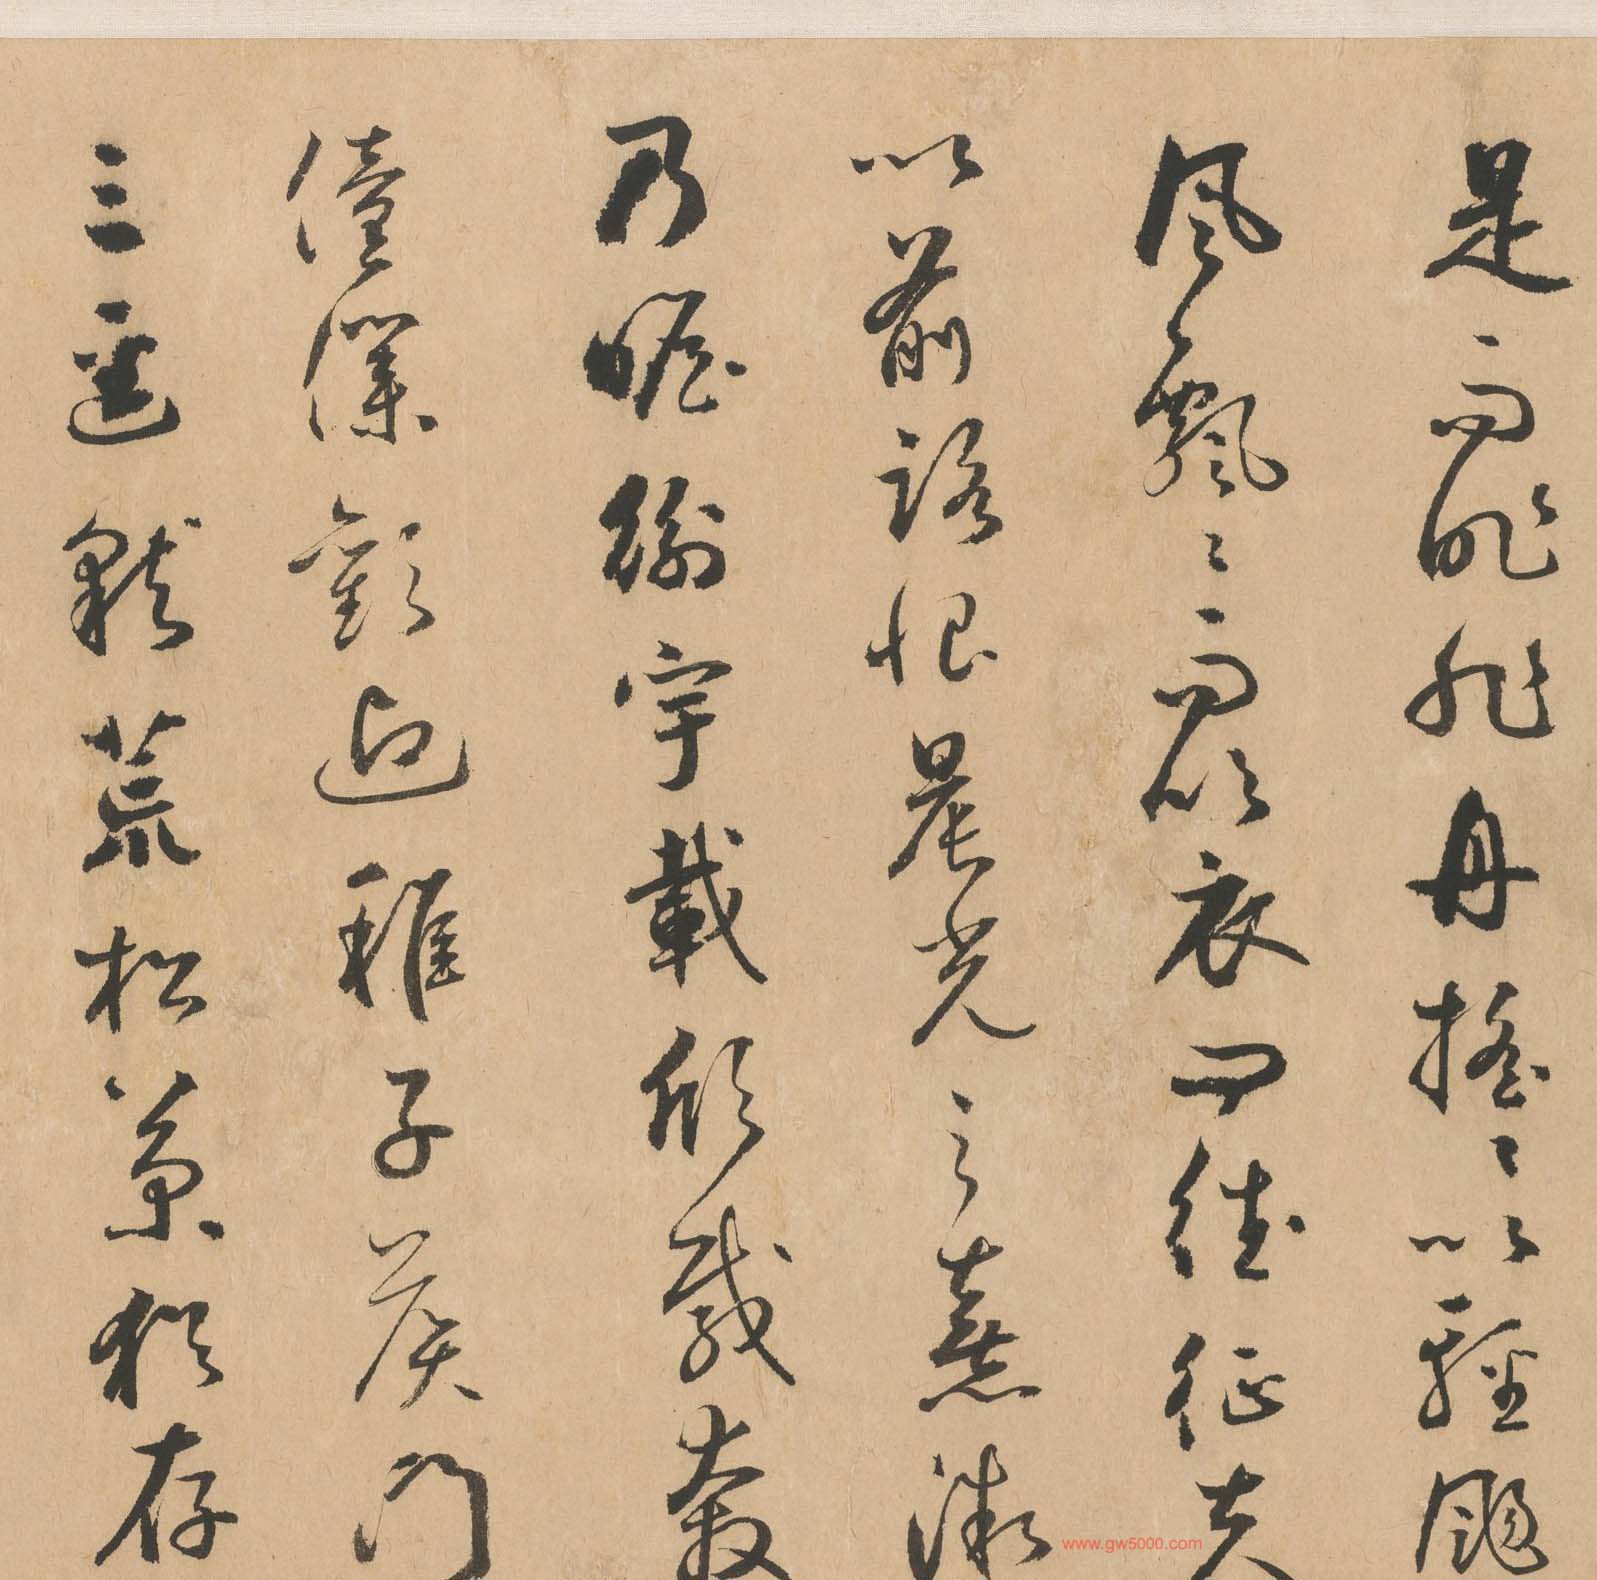 是而昨非舟搖〻以輕颺
風飄〻而吹衣問往征夫
以前路恨晨光之熹微
乃瞻衡宇載欣載奔
僮僕歡迎稚子候門
三逕就荒松菊猶存
www.gw5000.com